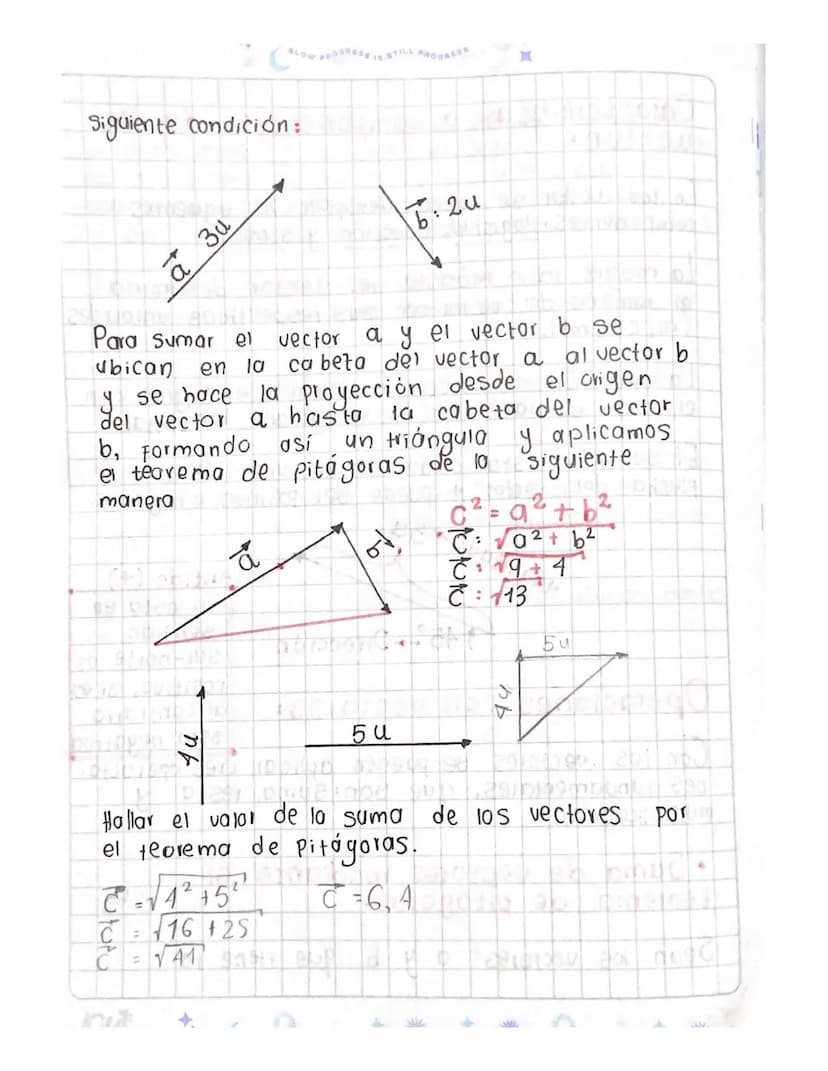 SLOW PROGRESS IS STILL PROGRESS
siguiente condición:
a 3u
b: 2u
Para sumar el vector a y el vector b se
ubican en la cabeta del vector a al vector b
y se hace la proyección desde el origen
del vector a hasta la cabeta del vector
b, formando así un triángulo y aplicamos
el teorema de pitágoras de la siguiente
manera
a
b
c² = a² + b²
c: √a² + b²
c: √9 + 4
c: √13
5u
4u
4u
5u
Hallar el valor de la suma de los vectores por
el teorema de Pitágoras.
c = √4² + 5²
c = 6,4
c = √16 + 25
c = √41